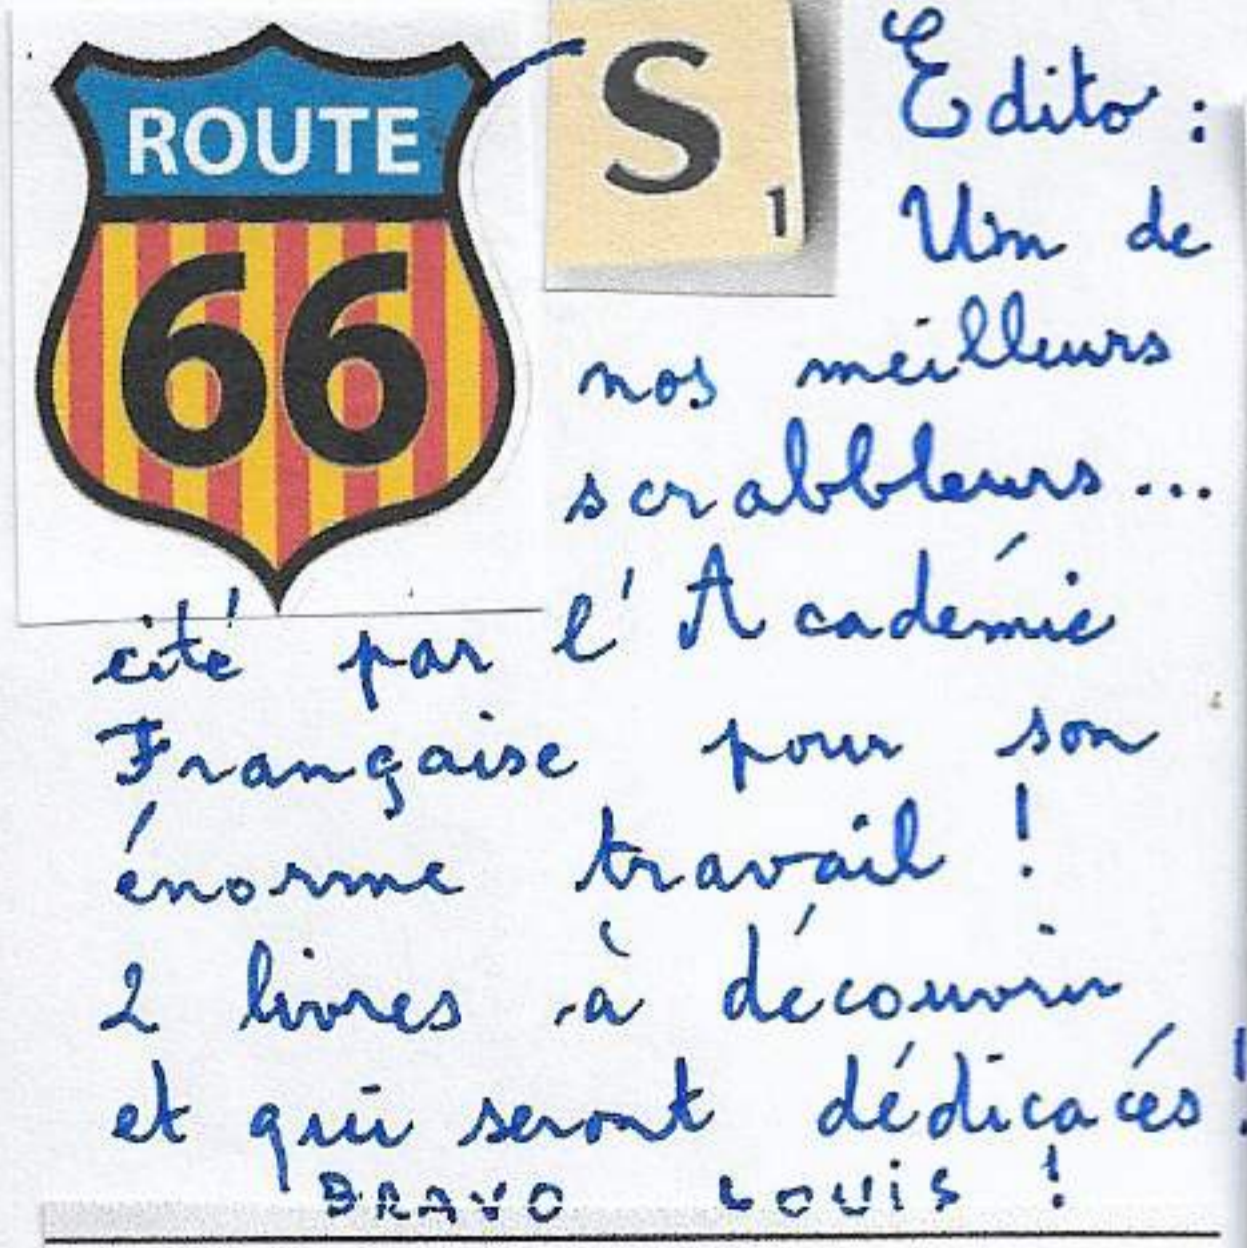 ROUTE
66
S
1
Edito :
Un de
nos meilleurs
scrabbleurs...
cité par l'Académie
Française pour son
énorme travail !
2 livres à découvrir
et qui seront dédicacés !
BRAVO LOUIS !